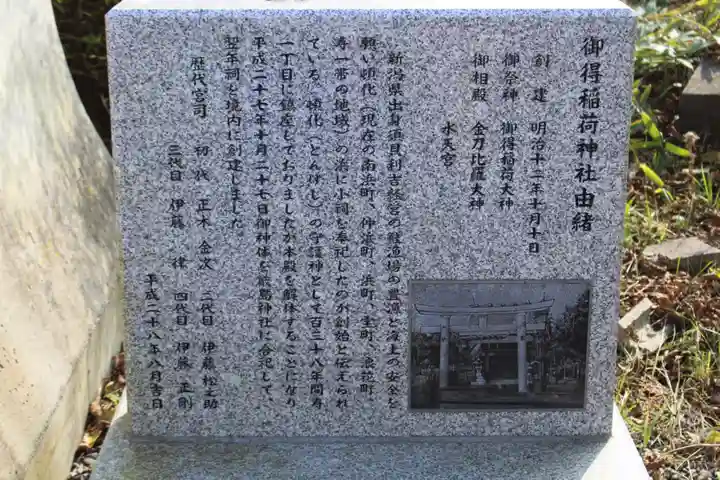 御得稲荷神社由緒
創建 明治十二年十月十日
御祭神 御得稲荷大神
御相殿 金刀比羅大神
水天宮
新潟県出身須貝利吉経営の鰊漁場の豊漁と海上の安全を
願い頓化（現在の南浜町、仲浜町、浜町、重町、浪花町、
寿一帯の地域）の浜に小祠を奉祀したのが創始と伝えられ
ている。頓化（とんけし）の守護神として百三十八年間寿
一丁目に鎮座しておりましたが本殿を解体することになり
平成二十七年十月二十七日御神体を厳島神社に合祀して、
翌年祠を境内に創建しました
歴代宮司 初代 正木金次 二代目 伊藤松之助
三代目 伊藤律 四代目 伊藤正則
平成二十八年八月吉日